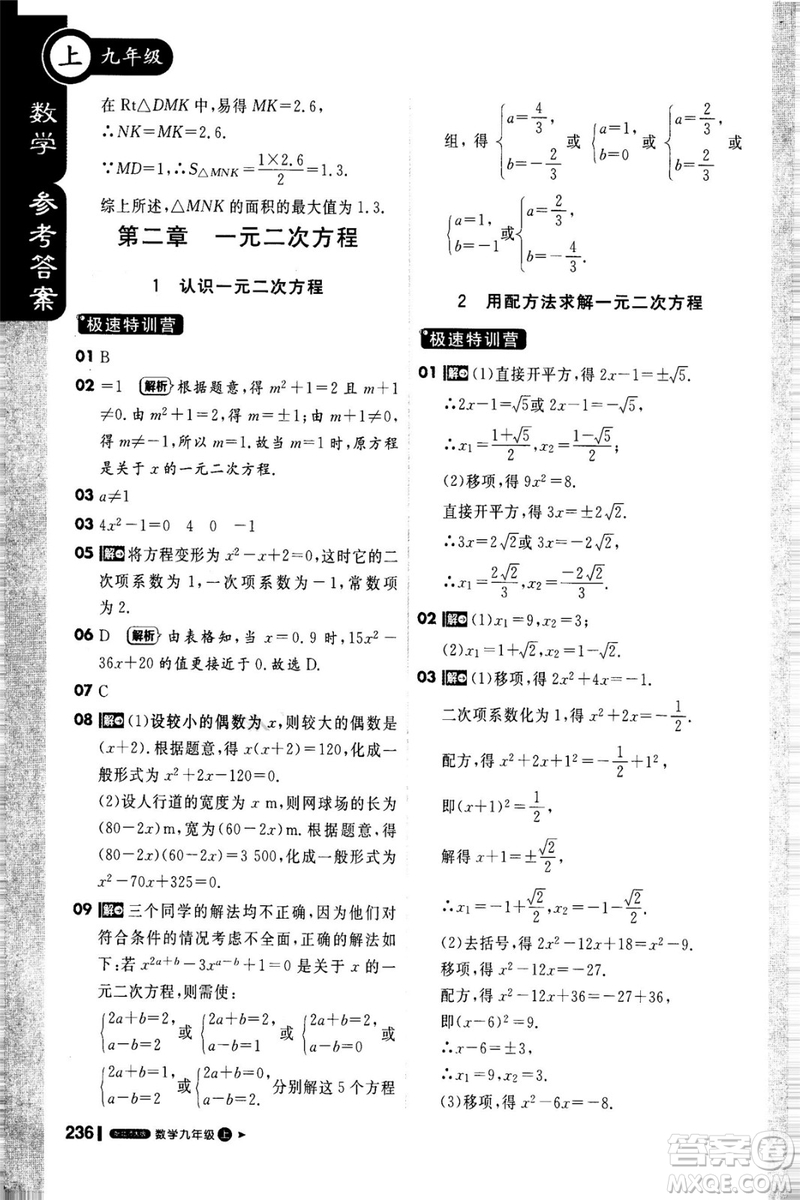 上 九年级
数学 参考答案
在 Rt△DMK 中,易得 MK=2.6,
∴NK=MK=2.6.
∵MD=1,∴S△MNK=\frac{1×2.6}{2}=1.3.
综上所述,△MNK 的面积的最大值为 1.3.
第二章 一元二次方程
1 认识一元二次方程
极速特训营
01 B
02 =1 解析 根据题意,得 m²+1=2 且 m+1
≠0. 由 m²+1=2,得 m=±1;由 m+1≠0,
得 m≠−1,所以 m=1. 故当 m=1 时,原方程
是关于 x 的一元二次方程.
03 a≠1
03 4x²−1=0 4 0 −1
05 解 将方程变形为 x²−x+2=0,这时它的二
次项系数为 1,一次项系数为−1,常数项
为 2.
06 D 解析 由表格知,当 x=0.9 时,15x²−
36x+20 的值更接近于 0. 故选 D.
07 C
08 解 (1)设较小的偶数为 x,则较大的偶数是
(x+2). 根据题意,得 x(x+2)=120,化成一
般形式为 x²+2x−120=0;
(2)设人行道的宽度为 x m,则网球场的长为
(80−2x)m,宽为(60−2x)m. 根据题意,得
(80−2x)(60−2x)=3 500,化成一般形式为
x²−70x+325=0.
09 解 三个同学的解法均不正确,因为他们对
符合条件的情况考虑不全面,正确的解法如
下:若 x^{2a+b}−3x^{a−b}+1=0 是关于 x 的一
元二次方程,则需使:
{2a+b=2, a−b=2 或 {2a+b=2, a−b=1 或 {2a+b=2, a−b=0 或
{2a+b=1, a−b=2 或 {2a+b=0, a−b=2, 分别解这 5 个方程
组,得 {a=\frac{4}{3}, b=−\frac{2}{3} 或 {a=1, b=0 或 {a=\frac{2}{3}, b=\frac{2}{3} 或
{a=1, b=−1 或 {a=\frac{2}{3}, b=−\frac{4}{3}.
2 用配方法求解一元二次方程
极速特训营
01 解 (1)直接开平方,得 2x−1=±√5.
∴2x−1=√5或 2x−1=−√5.
∴x₁=\frac{1+√5}{2},x₂=\frac{1−√5}{2};
(2)移项,得 9x²=8.
直接开平方,得 3x=±2√2.
∴3x=2√2或 3x=−2√2.
∴x₁=\frac{2√2}{3},x₂=−\frac{2√2}{3}.
02 解 (1)x₁=9,x₂=3;
(2)x₁=1+√2,x₂=1−√2.
03 解 (1)移项,得 2x²+4x=−1.
二次项系数化为 1,得 x²+2x=−\frac{1}{2}.
配方,得 x²+2x+1²=−\frac{1}{2}+1²,
即(x+1)²=\frac{1}{2}.
解得 x+1=±\frac{√2}{2}.
∴x₁=−1+\frac{√2}{2},x₂=−1−\frac{√2}{2}.
(2)去括号,得 2x²−12x+18=x²−9.
移项,得 x²−12x=−27.
配方,得 x²−12x+36=−27+36,
即(x−6)²=9.
∴x−6=±3,
∴x₁=9,x₂=3.
(3)移项,得 3x²+6x=4.
236 数学九年级 上
答案圈
MXQE.COM